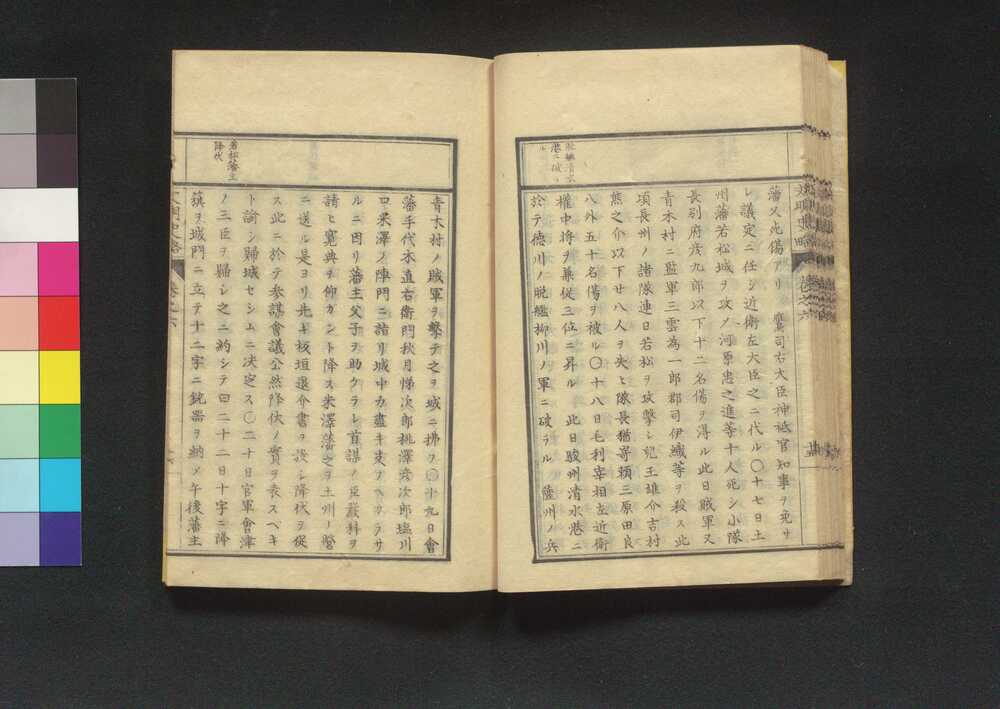 脱艦清水
港ニ破ラ
ル
藩又死傷アリ 鷹司右大臣神祇官知事ヲ免サ
レ議定ニ任シ近衛左大臣之ニ代ル〇十七日土
州藩若松城ヲ攻ノ河原忠之進等十人死シ小隊
長別府茂九郎以下十二名傷ヲ得ル此日賊軍又
青木村ニ監軍三雲為一郎郡司伊織等ヲ殺ス此
項長州ノ諸隊連日若松ヲ攻撃シ児玉雄介吉村
熊之介以下廿八人ヲ失ヒ隊長猶嵜頼三原田良
八外五十名傷ヲ被ル〇十八日毛利宰相左近衛
権中将ヲ兼従三位ニ昇ル 此日駿州清水港ニ
於テ徳川ノ脱艦柳川ノ軍ニ破ラル 薩州ノ兵
文明史略 巻之六
若松藩主
降伏
青木村ノ賊軍ヲ撃テ之ヲ城ニ拂フ〇十九日會
藩手代木直右衛門秋月悌次郎桃澤彦次郎塩川
口米澤ノ陣門ニ詣リ城中力盡キ支フヘカラサ
ルニ因リ藩主父子ヲ助クラレ首謀ノ臣嚴科ヲ
請ヒ寛典ヲ仰カント降ス米澤藩之ヲ土州ノ營
ニ送ル是ヨリ先キ板垣退介書ヲ投シ降伏ヲ促
ス此ニ於テ参謀會議公然降伏ノ實ヲ表スヘキ
ト諭シ歸城セシムニ决定ス〇二十日官軍會津
ノ三臣ヲ歸シ之ニ約シテ曰二十二日十字ニ降
旗ヲ城門ニ立テ十二字ニ銃器ヲ納メ午後藩主